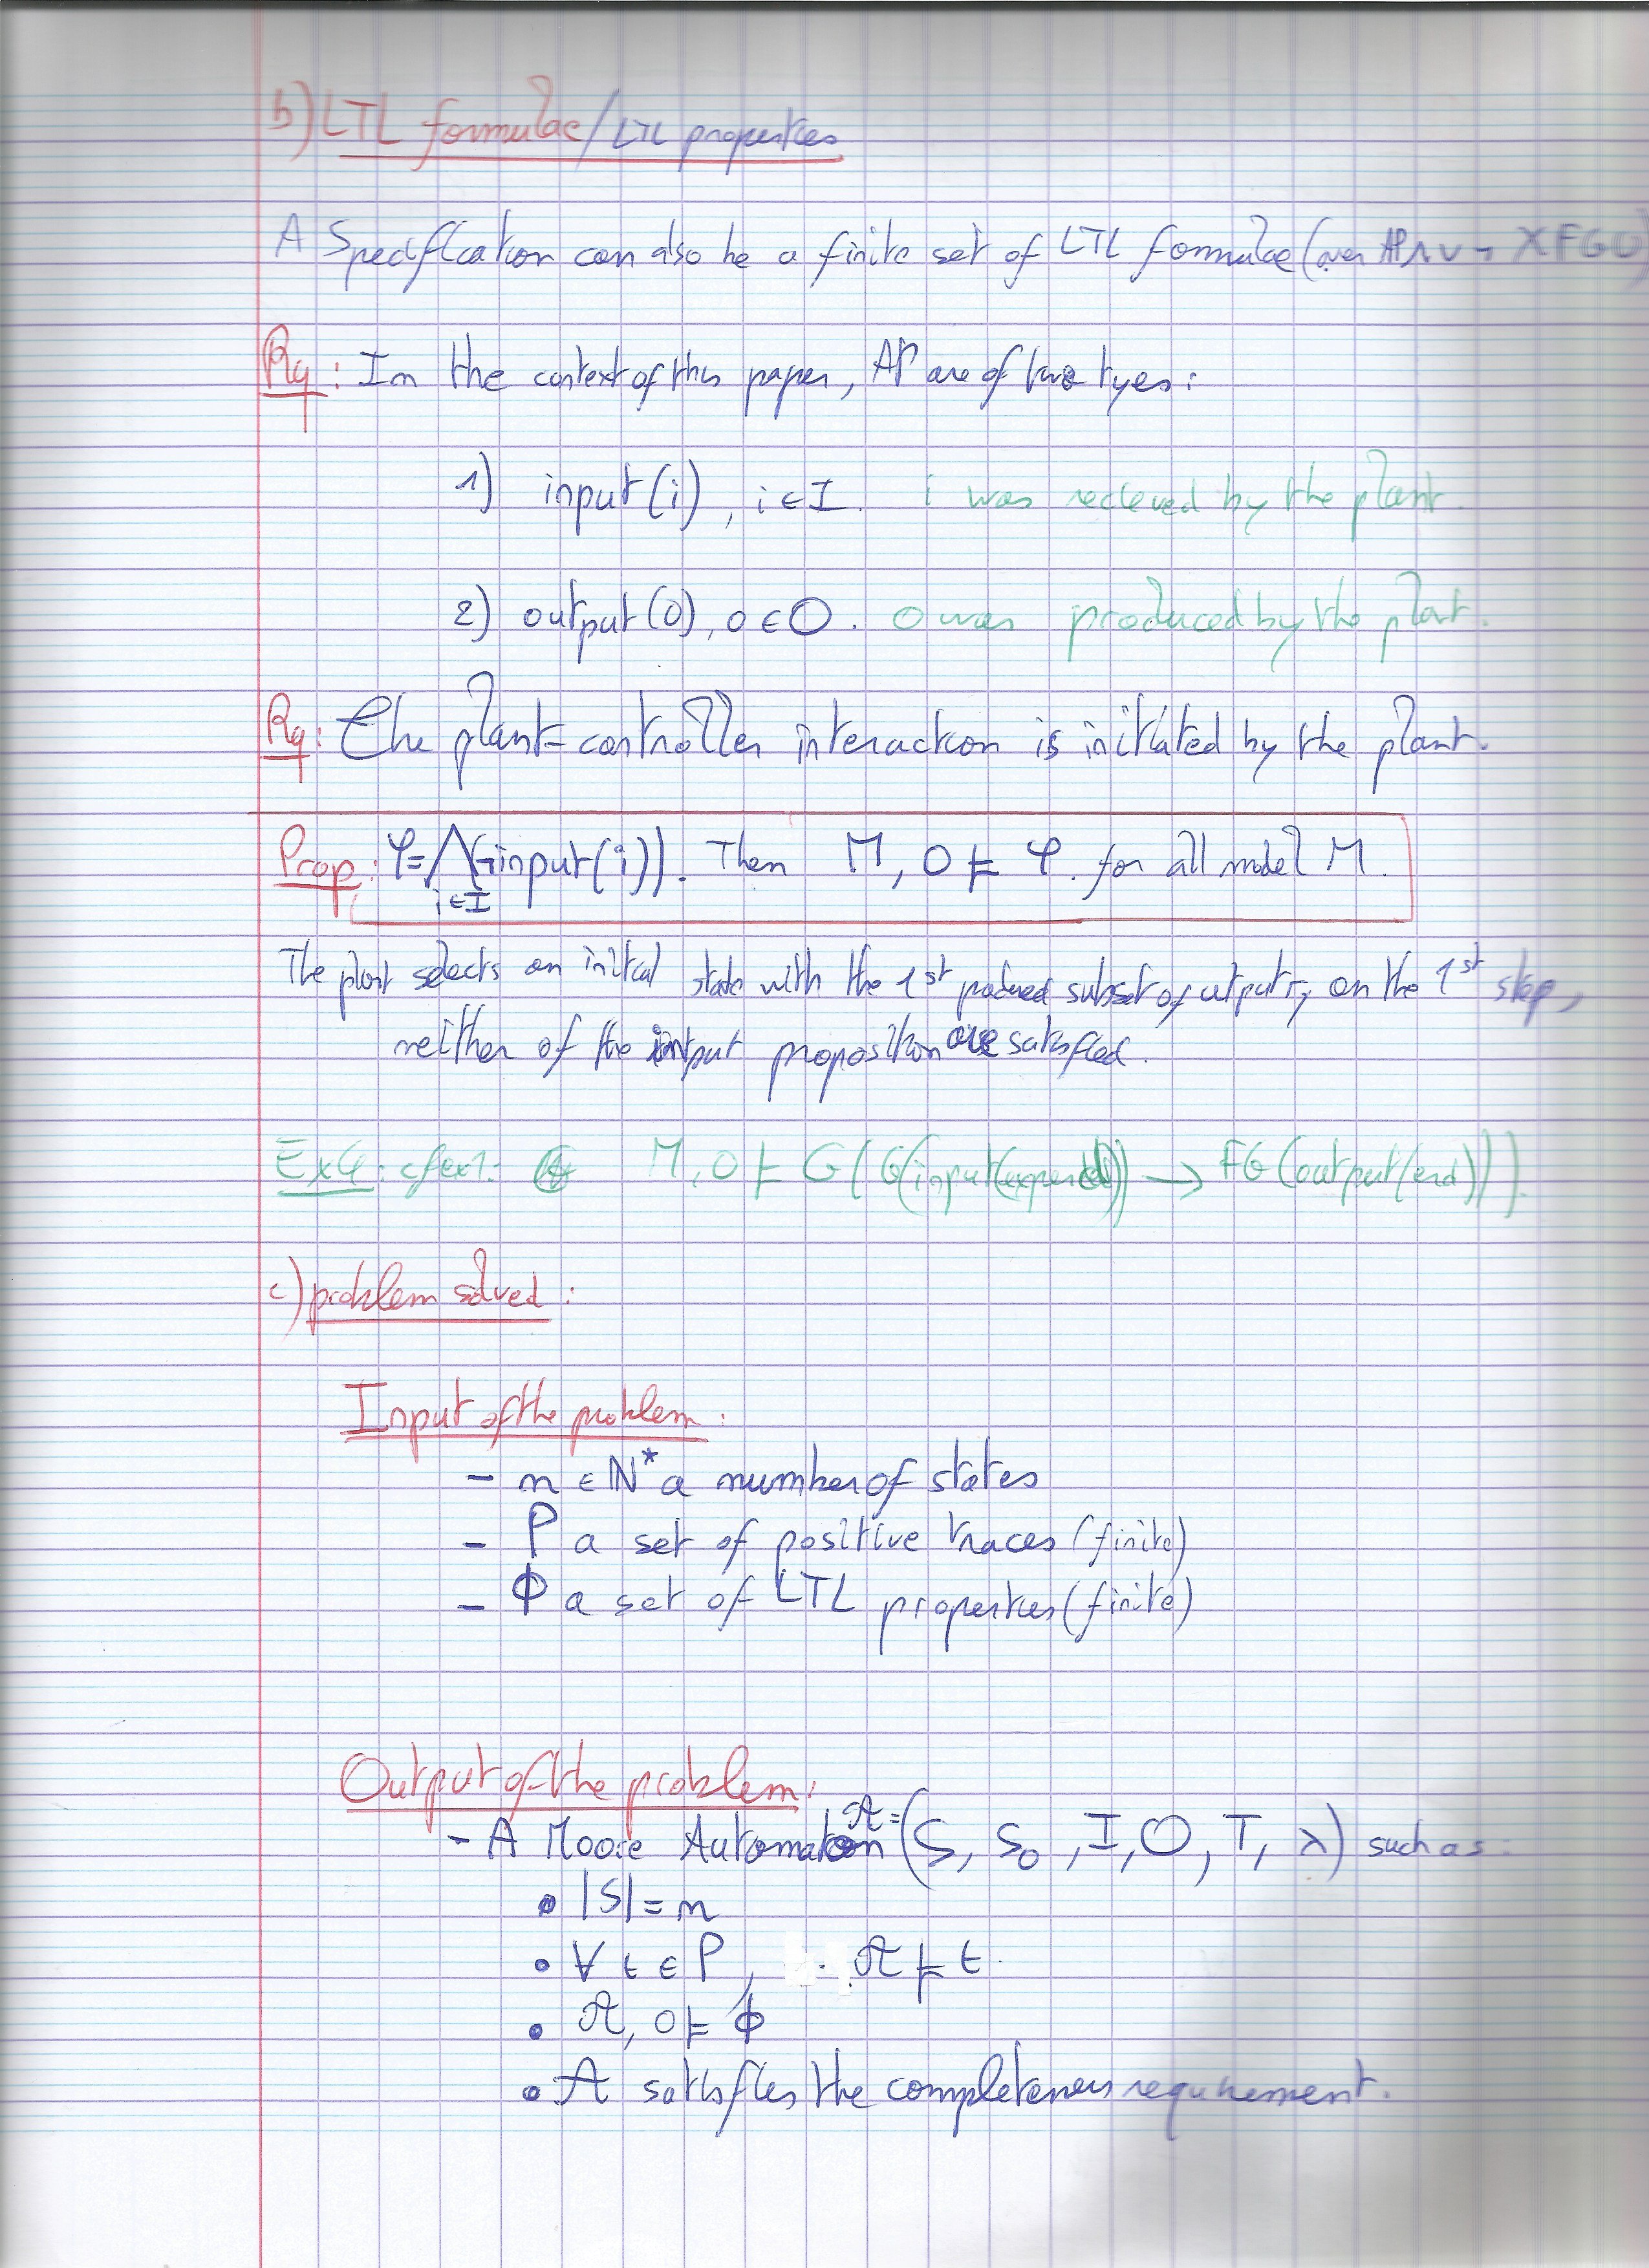 b) LTL formulae / LTL properties
A Specification can also be a finite set of LTL formulae (over AP ∧ ∨ ¬ X F G U)
Rq: In the context of this paper, AP are of two tyes:
1) input(i), i ∈ I. i was recieved by the plant.
2) output(o), o ∈ O. o was produced by the plant.
Rq: The plant-controller interaction is initiated by the plant.
Prop: φ = ⋀ (¬input(i)). Then M, 0 ⊨ φ. for all model M.
i ∈ I
The plant selects an initial state with the 1st produced subset of outputs, on the 1st step,
neither of the input proposition are satisfied.
Ex4: cf ex1: M, 0 ⊨ G(G(input(expended)) → FG(output(end))).
c) problem solved:
Input of the problem:
- n ∈ ℕ* a number of states
- P a set of positive traces (finite)
- Φ a set of LTL properties (finite)
Output of the problem:
- A Moore Automaton 𝒜 = (S, s₀, I, O, T, λ) such as:
• |S| = n
• ∀ t ∈ P, 𝒜 ⊨ t.
• 𝒜, 0 ⊨ Φ
• 𝒜 satisfies the completeness requirement.